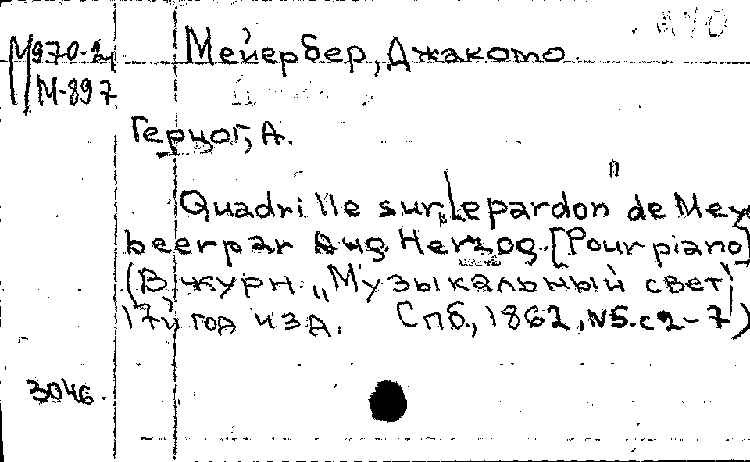 М970-2 Мейербер, Джакомо
М-897
Герцог, А.
Quadrille sur „Le pardon" de Mey
beer par Aug. Herzog. [Pour piano]
(В журн. „Музыкальный свет",
17й год изд. Спб., 1862, N5. с 2-7)
3046.